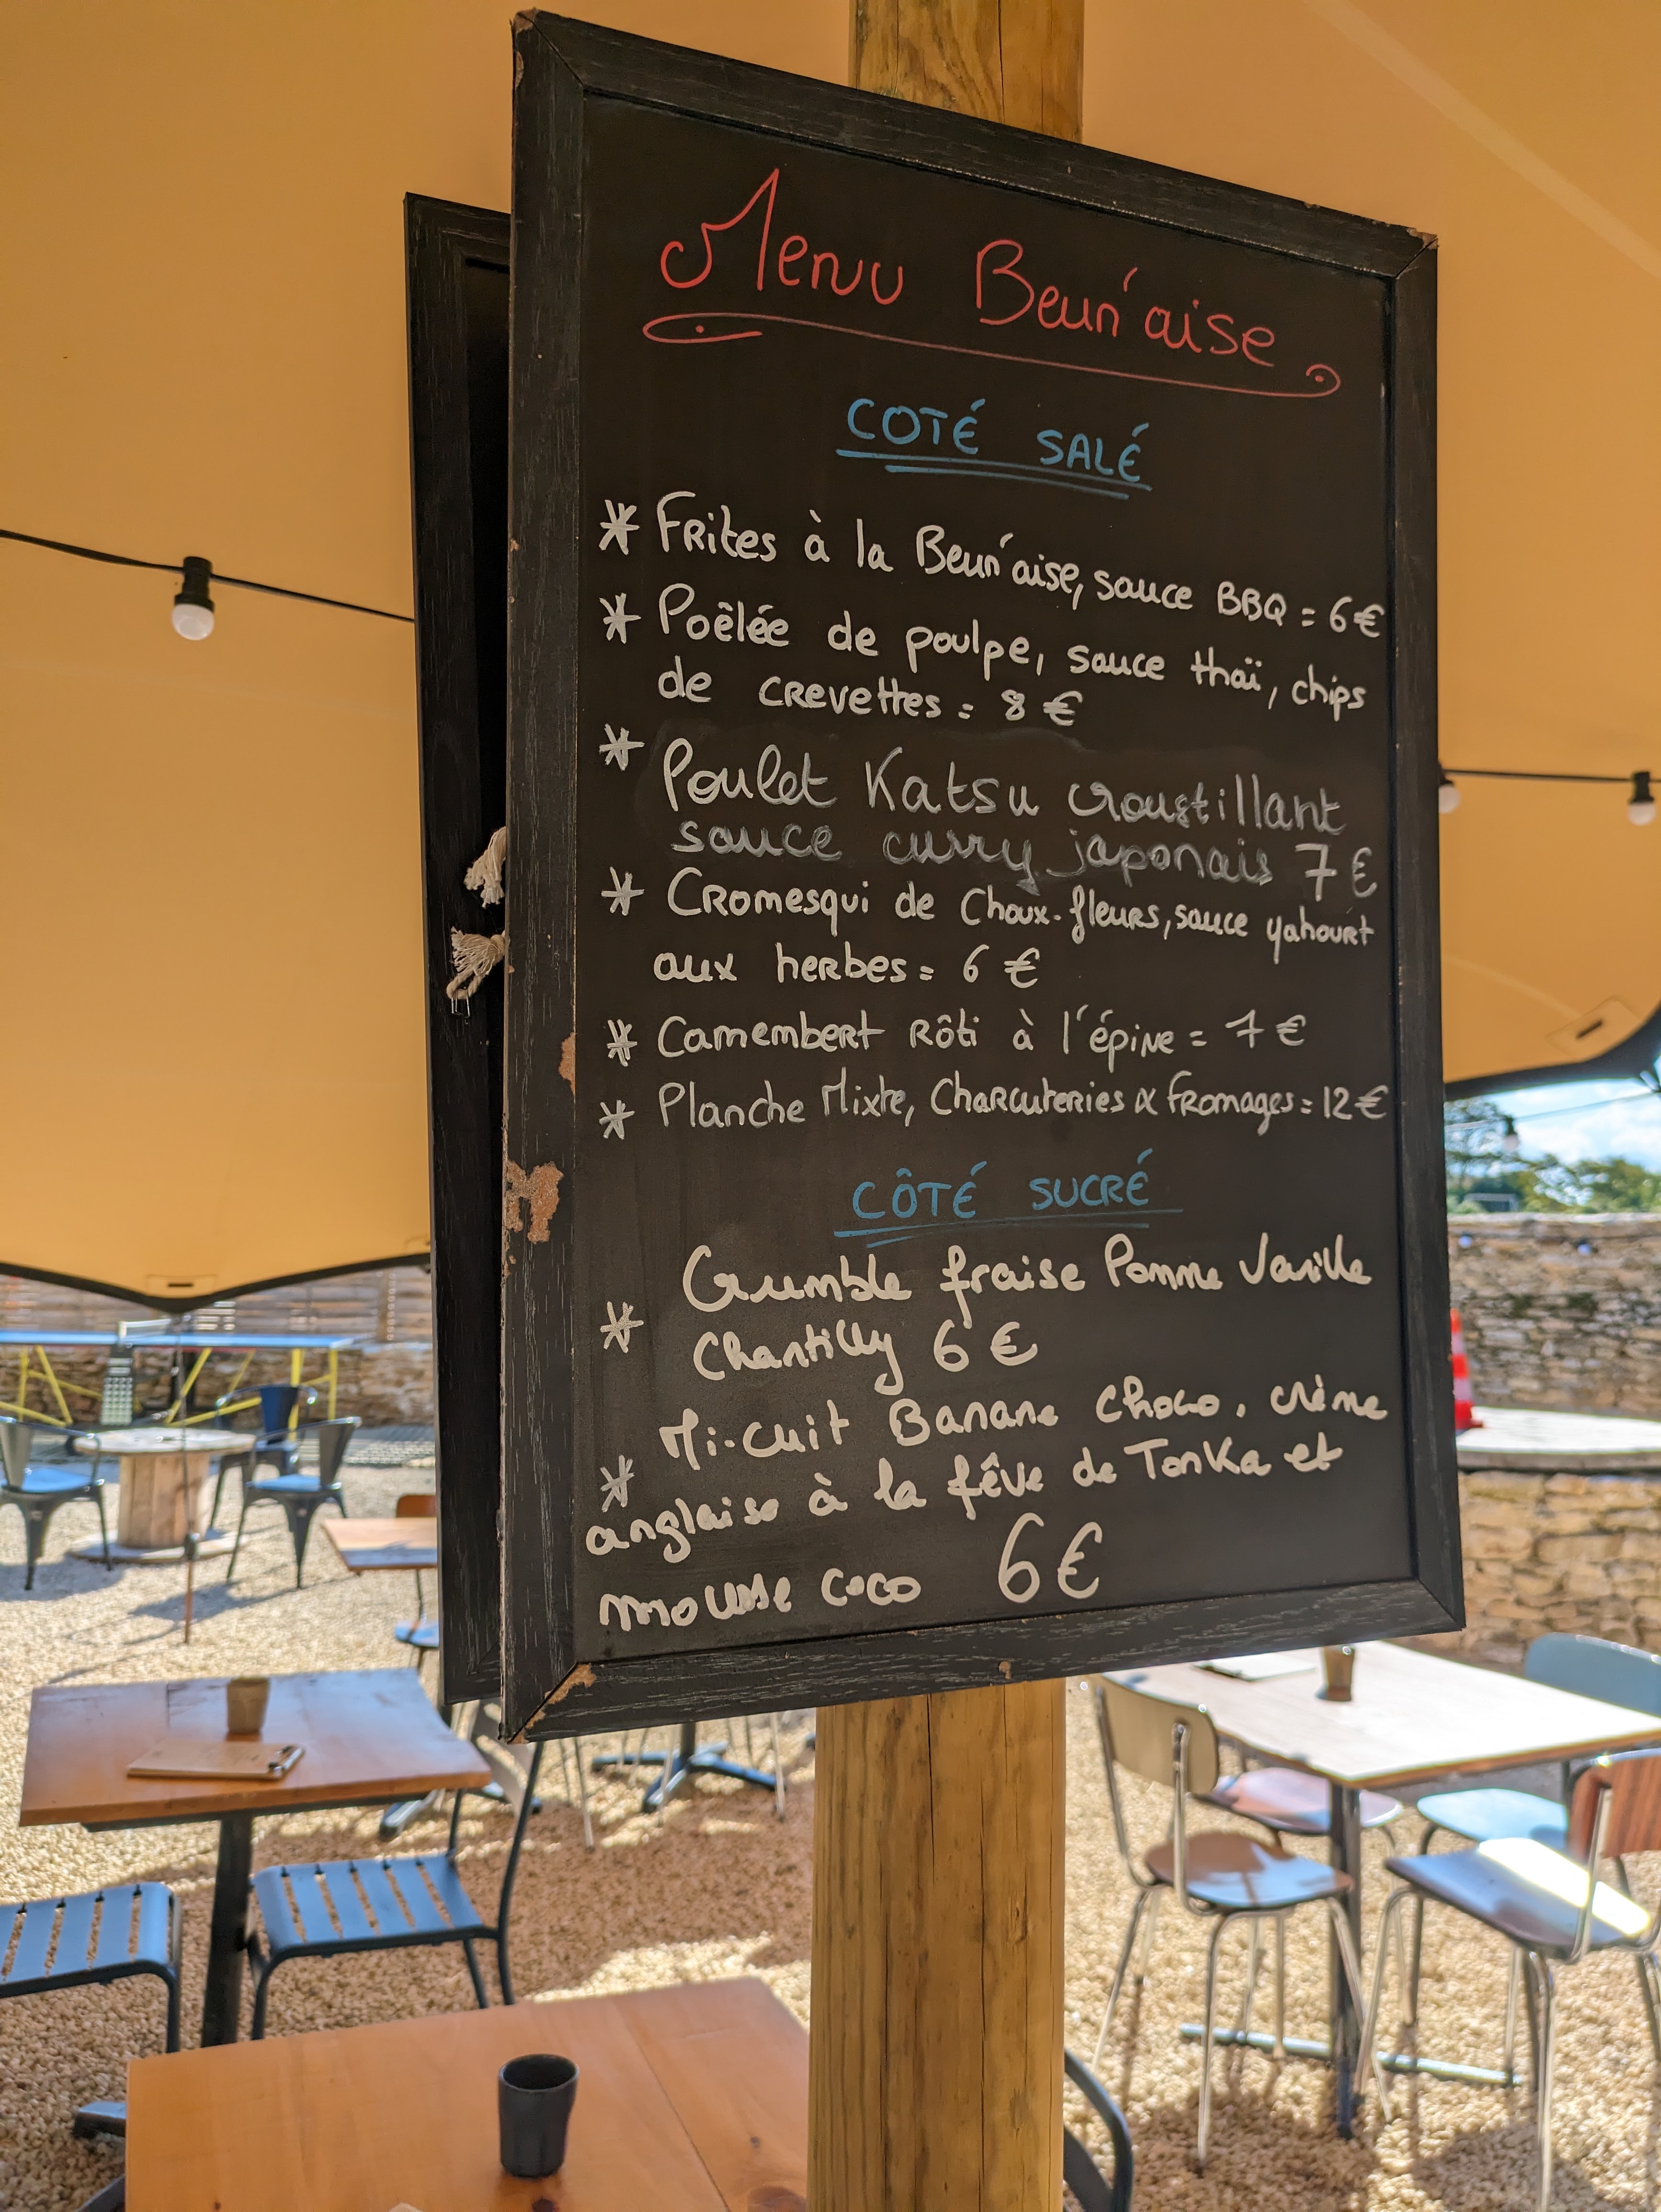 Menu Beun'aise
COTÉ SALÉ
* Frites à la Beun'aise, sauce BBQ = 6€
* Poêlée de poulpe, sauce thaï, chips
de crevettes = 8 €
* Poulet Katsu croustillant
sauce curry japonais 7€
* Cromesqui de Choux-fleurs, sauce yahourt
aux herbes = 6 €
* Camembert rôti à l'épine = 7 €
* Planche Mixte, Charcuteries & fromages = 12€
CÔTÉ SUCRÉ
* Crumble fraise Pomme Vanille
Chantilly 6 €
* Mi-cuit Banane Choco, crème
anglaise à la fêve de Tonka et
mousse coco 6€